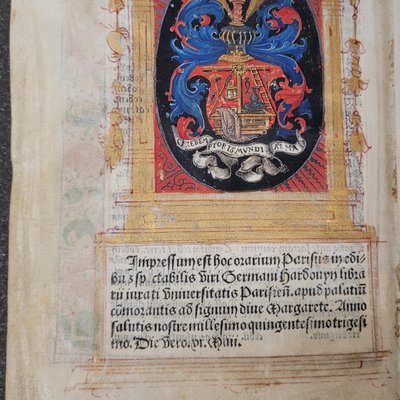 REDEMPTORIS MVNDI ARMA
Impressum est hoc orarium Parisiis in edi-
bus spectabilis viri Germani Hardouyn libra
rii iurati vniuersitatis Parisieñ. apud palatiũ
cõmorantis ad signum diue Margarete. Anno
salutis nostre millesimo quingentesimo trigesi
mo. Die vero. vi. Maii.